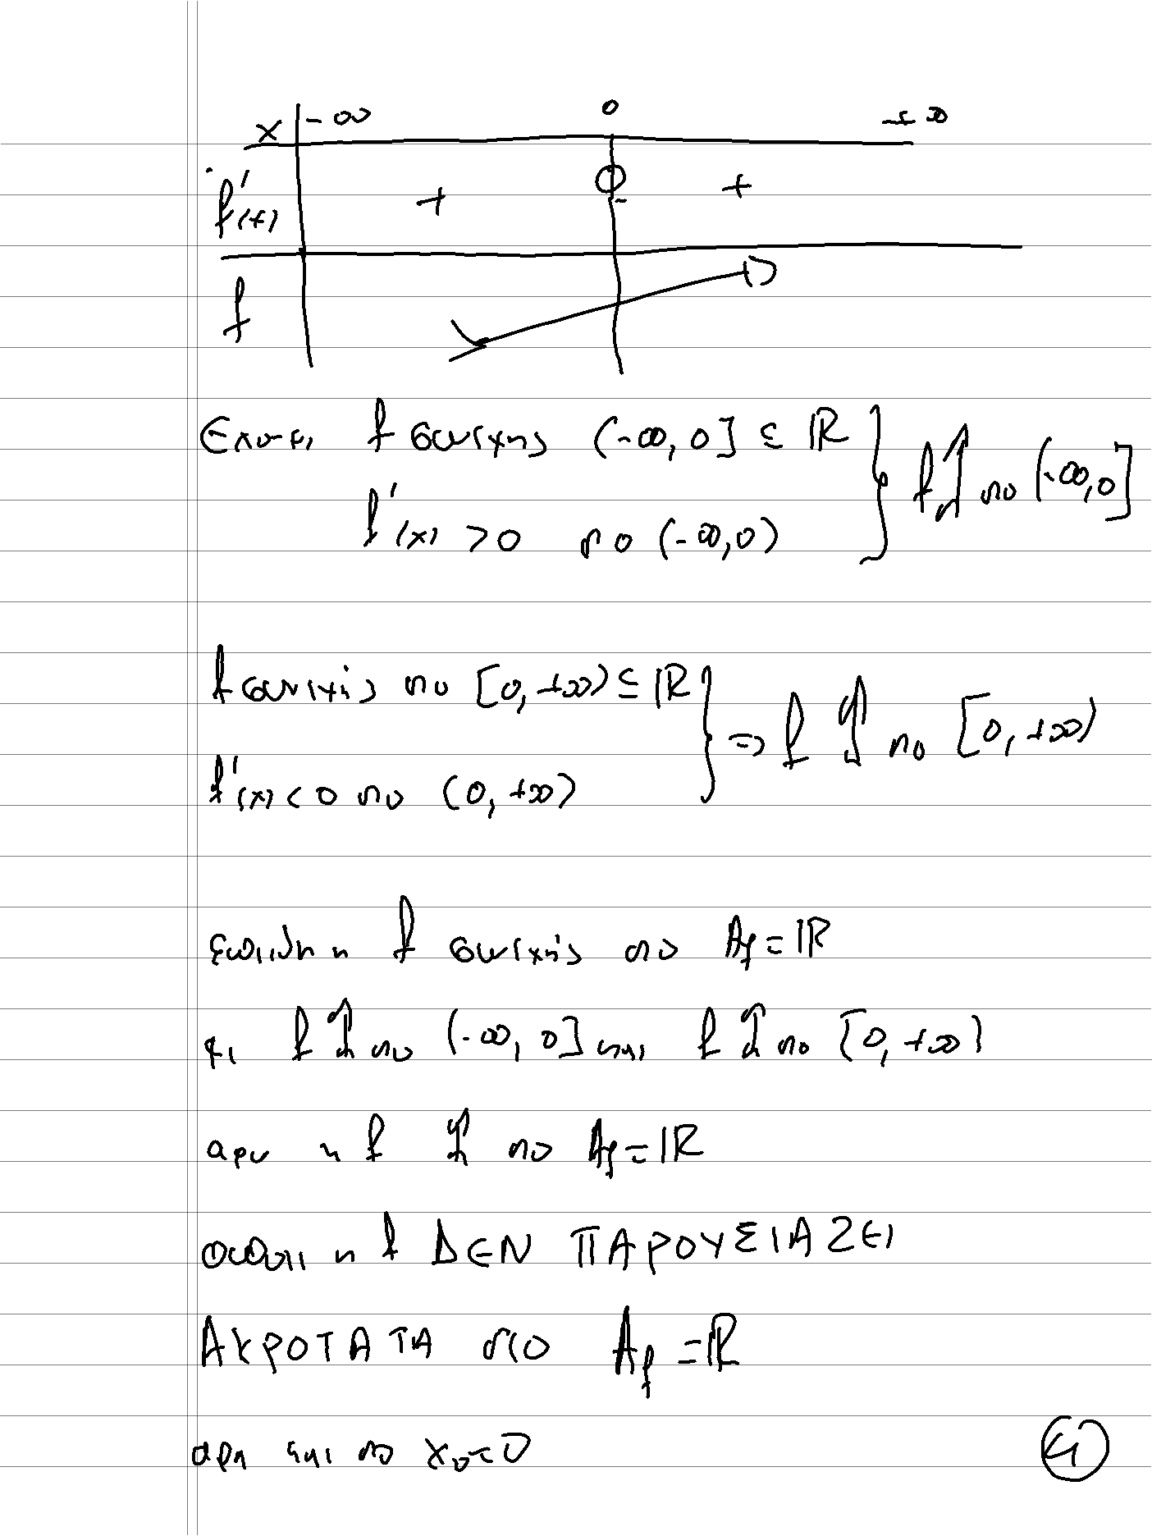 x -∞ 0 +∞
f'(x) + 0 +
f
Εχουμε f συνεχης (-∞, 0] ⊆ ℝ } f ↑ στο (-∞, 0]
f'(x) > 0 στο (-∞, 0)
f συνεχής στο [0, +∞) ⊆ ℝ } ⇒ f ↑ στο [0, +∞)
f'(x) < 0 στο (0, +∞)
επειδη η f συνεχής στο Af = ℝ
κι f ↑ στο (-∞, 0] και f ↑ στο [0, +∞)
αρα η f ↑ στο Af = ℝ
οποτε η f ΔΕΝ ΠΑΡΟΥΣΙΑΖΕΙ
ΑΚΡΟΤΑΤΑ στο Af = ℝ
αρα και στο x₀ = 0